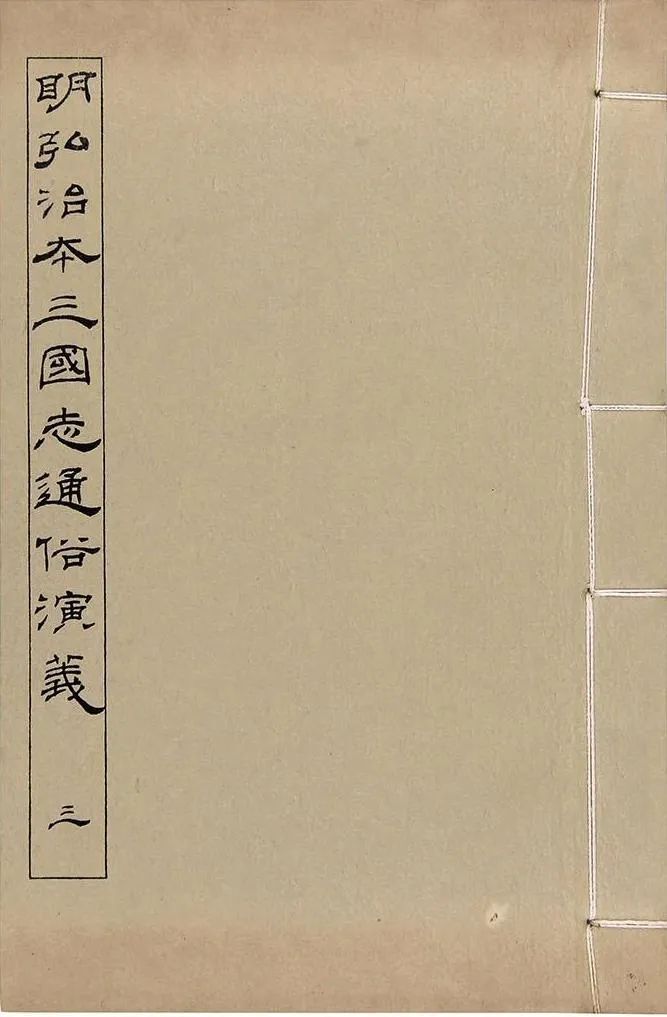 明弘治本三國志通俗演義 三